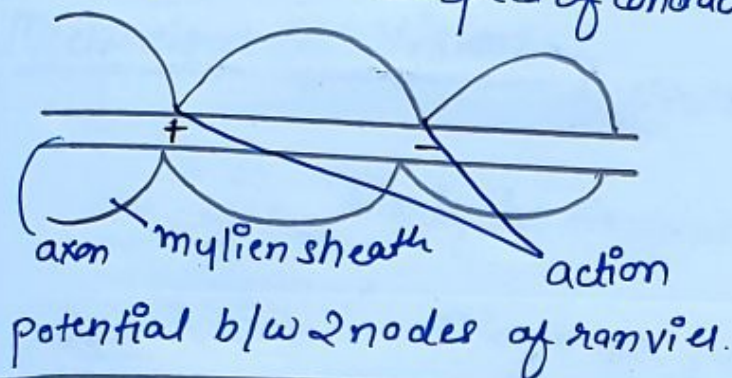 of conduc
+ –
axon mylien sheath action
potential b/w 2 nodes of ranvier.